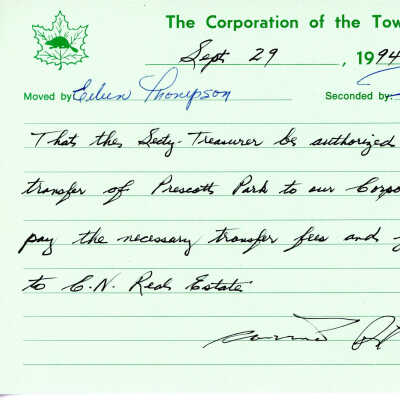 The Corporation of the Tow
Sept 29, 1994
Moved by Eileen Thompson Seconded by
That the Secty-Treasurer be authorized
transfer of Prescott Park to our Corpo
pay the necessary transfer fees and
to C.N. Real Estate.